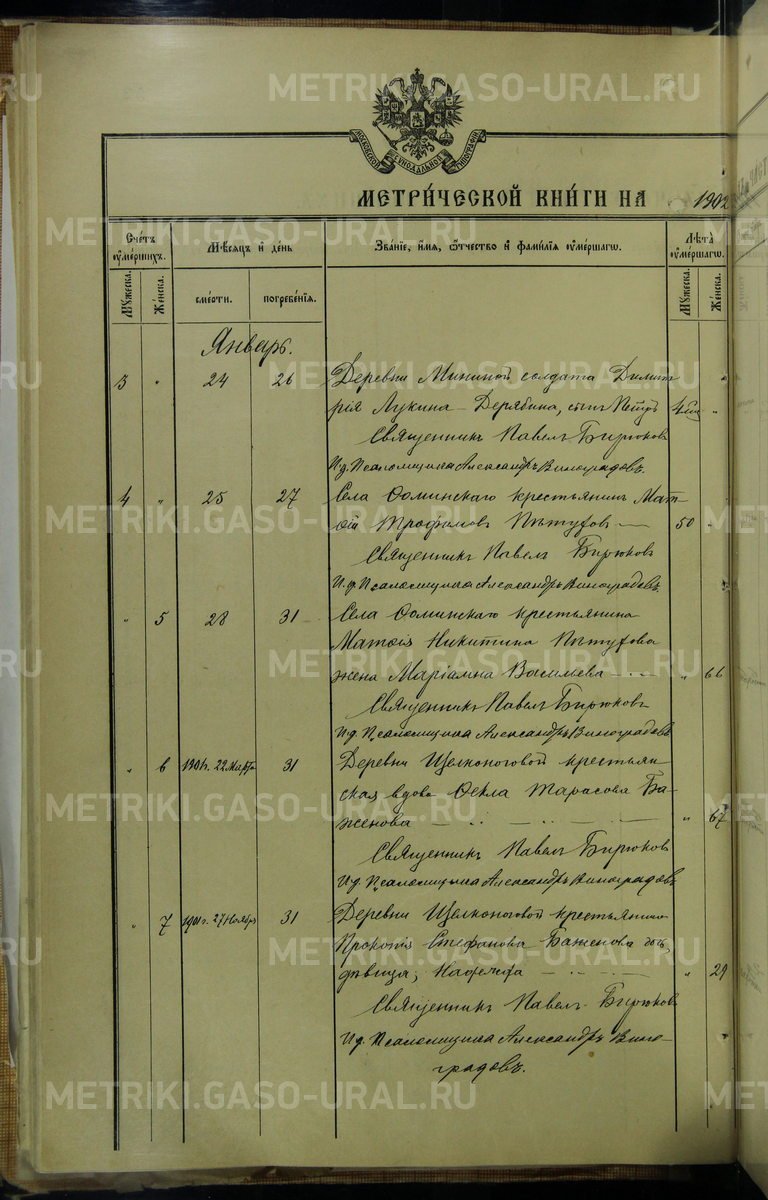 МОСКОВСКОЙ СѴНОДАЛЬНОЙ ТИПОГРАФІИ
МЕТРИ́ЧЕСКОЙ КНИ́ГИ НА 1902
Сче́тъ ᲂу҆ме́ршихъ.
Мꙋ́жеска.
Же́нска.
Мѣ́сѧцъ и҆ де́нь
сме́рти.
погребе́нїѧ.
Зва́нїе, и҆́мѧ, ѻ҆́тчество и҆ фами́лїѧ ᲂу҆ме́ршагѡ.
Лѣ́та ᲂу҆ме́ршагѡ.
Мꙋ́жеска.
Же́нска.
Январь.
3 " 24 26 Деревни Мининой солдата Димит
рія Лукина Дерябина, сынъ Петръ "
Священникъ Павелъ Бирюковъ
И.д. Псаломщика Александръ Виноградовъ.
4 " 25 27 Села Ѳоминскаго крестьянинъ Мат
ѳій Трофимовъ Пѣтуховъ — 50 "
Священникъ Павелъ Бирюковъ
И.д. Псаломщика Александръ Виноградовъ
" 5 28 31 Села Ѳоминскаго крестьянина
Матѳія Никитина Пѣтухова
жена Маріамна Васильева — " 66
Священникъ Павелъ Бирюковъ
И.д. Псаломщика Александръ Виноградовъ
" 6 1901г. 22 Марта 31 Деревни Щелконоговой крестьян
ская вдова Ѳекла Тарасова Ба-
женова — " 67
Священникъ Павелъ Бирюковъ
И.д. Псаломщика Александръ Виноградовъ
" 7 1901г. 27 Ноября 31 Деревни Щелконоговой крестьянина
Прокопія Стефанова Баженова дочь,
дѣвица, — " 29
Священникъ Павелъ Бирюковъ
И.д. Псаломщика Александръ Вино-
градовъ.
METRIKI.GASO-URAL.RU